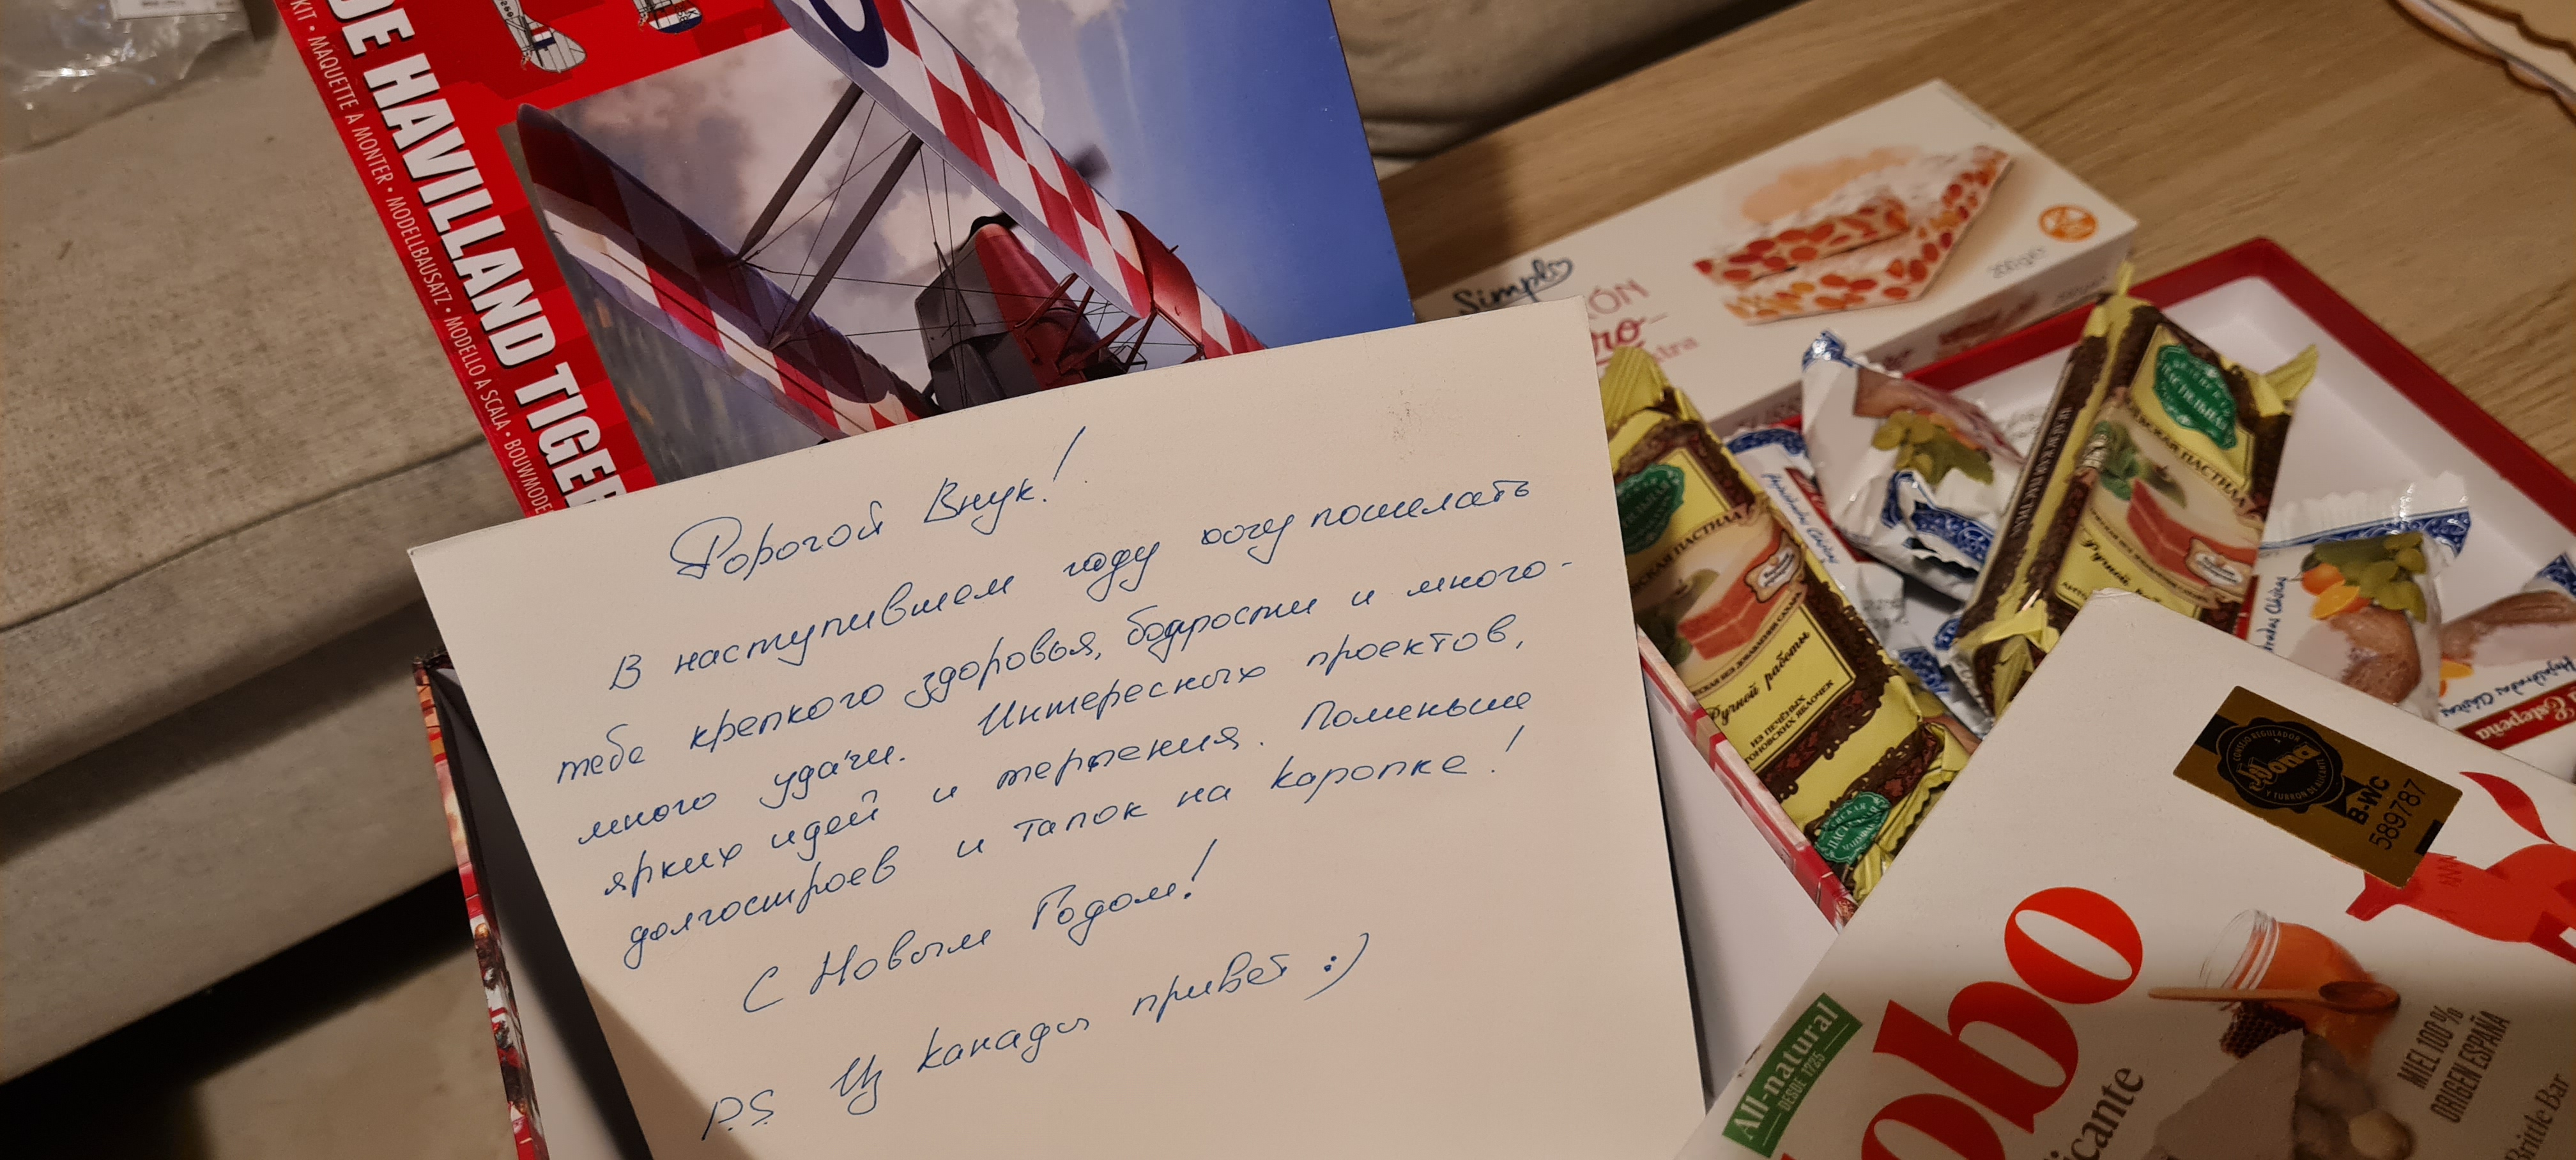 DE HAVILLAND TIGER
KIT • MAQUETTE À MONTER • MODELLBAUSATZ • MODELLO A SCALA • BOUWMODE
Simpl
200g
Дорогой Внук!
В наступившем году хочу пожелать
тебе крепкого здоровья, бодрости и много-
много удачи. Интересных проектов,
ярких идей и терпения. Поменьше
долгостроев и тапок на каропке!
С Новым Годом!
P.S Из Канады привет :)
ПАСТИЛА
Ручной работы
ИЗ ПЕЧЁНЫХ
ЯБЛОЧЕК
ПАСТИЛЬНАЯ
ПАСТИЛА
Ручной
Hojaldradas Clásicas
Estepeña
CONSEJO REGULADOR
Jijona
Y TURRÓN DE ALICANTE
B-WC
589787
obo
All-natural
DESDE 1725
icante
MIEL 100%
ORIGEN ESPAÑA
Brittle Bar